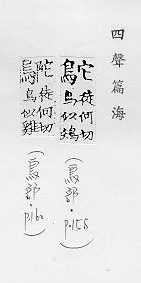 四聲篇海
徒何切
鳥似
(鳥部·p.158)
徒何切
鳥似雞
(鳥部·p.160)